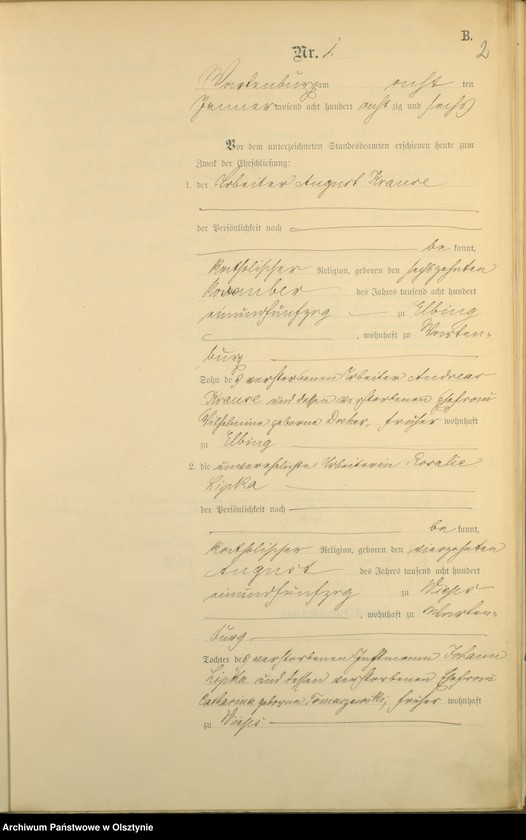 B.
2
Nr. 1.
Wartenburg am acht ten
Januar tausend acht hundert acht zig und sechs
Vor dem unterzeichneten Standesbeamten erschienen heute zum
Zweck der Eheschließung:
1. der Arbeiter August Krause
der Persönlichkeit nach
be kannt,
katholischer Religion, geboren den sechszehnten
November des Jahres tausend acht hundert
einundfünfzig zu Elbing
, wohnhaft zu Warten-
burg
Sohn des verstorbenen Arbeiter Andreas
Krause und dessen verstorbenen Ehefrau
Wilhelmine geborne Dreher, früher wohnhaft
zu Elbing
2. die unverehelichte Arbeiterin Rosalie
Lipka
der Persönlichkeit nach
be kannt,
katholischer Religion, geboren den vierzehnten
August des Jahres tausend acht hundert
einundfünfzig zu Wieps
, wohnhaft zu Warten-
burg
Tochter des verstorbenen Instmann Johann
Lipka und dessen verstorbenen Ehefrau
Catharina geborne Tomaszewski, früher wohnhaft
zu Wieps
Archiwum Państwowe w Olsztynie